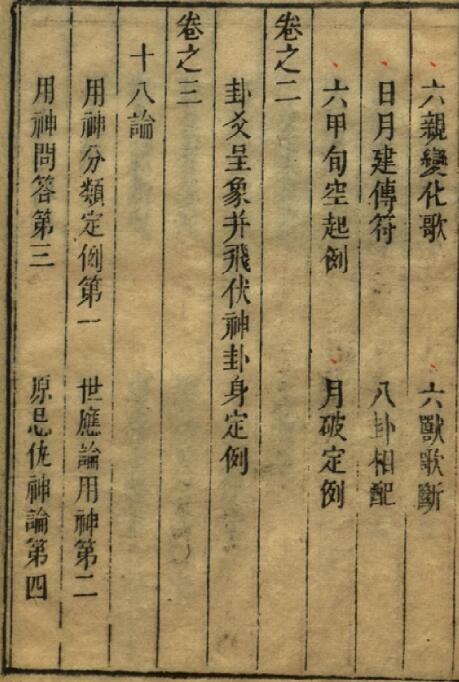 六親變化歌　六獸歌斷
日月建傳符　八卦相配
六甲旬空起例　月破定例
卷之二
卦爻呈象并飛伏神卦身定例
卷之三
十八論
用神分類定例第一　世應論用神第二
用神問答第三　原忌仇神論第四